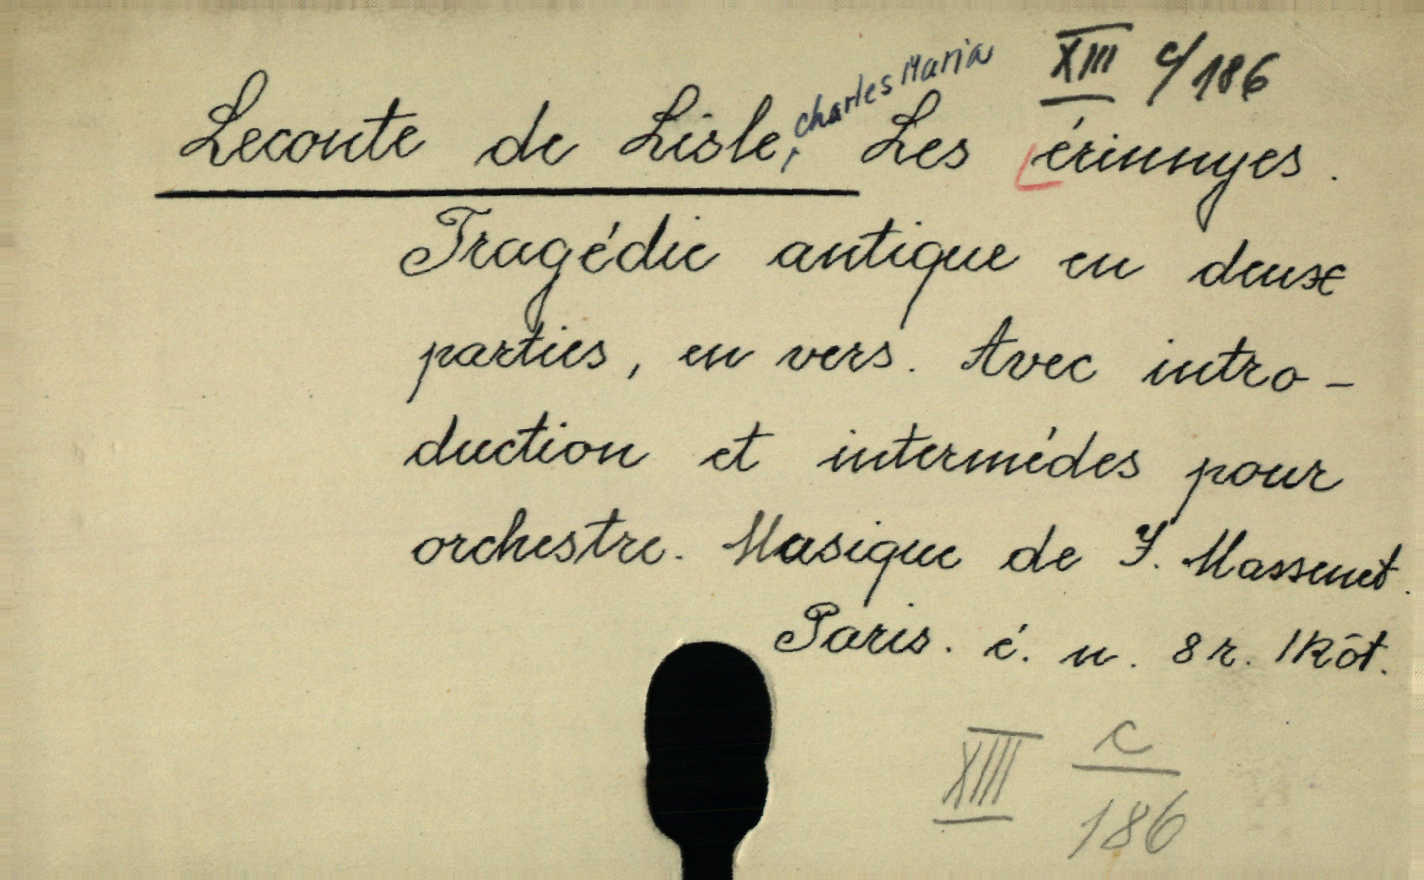 XIII c/186
Leconte de Lisle, charles Maria Les érinnyes.
Tragédie antique en deux
parties, en vers. Avec intro-
duction et intermédes pour
orchestre. Musique de J. Massenet.
Paris. é. n. 8r. 1 köt.
XIII c/186